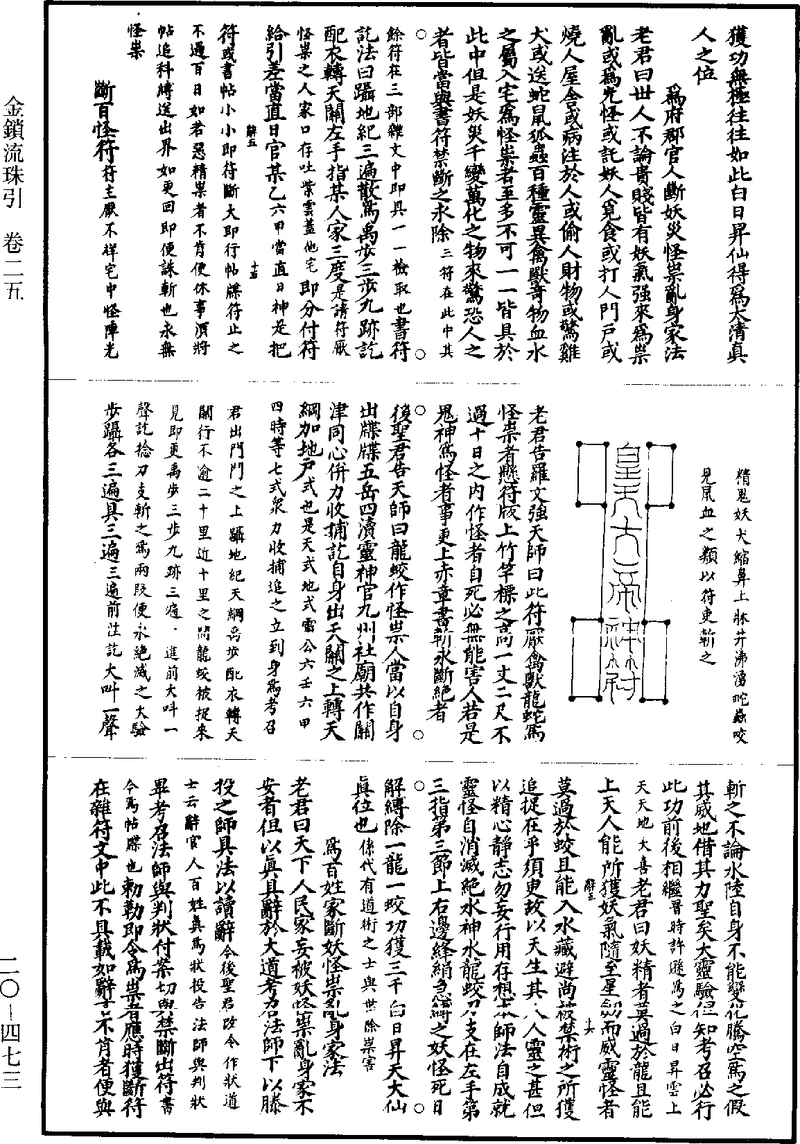 金鎖流珠引 卷二五
二〇—四七三
獲功無極往往如此白日昇仙得爲太清真
人之位
爲府郡官人斷妖災怪祟亂身家法
老君曰世人不論貴賤皆有妖氣强來爲祟
亂或爲光怪或託妖人覓食或打人門戸或
燒人屋舍或病注於人或偷人財物或驚雞
犬或送蛇鼠狐蟲百種靈異禽獸奇物血水
之屬入宅爲怪祟者至多不可一一皆具於
此中但是妖災千變萬化之物來驚恐人之
者皆當與書符禁斷之永除三符在此中其
餘符在三部雜文中即具一一檢取也書符
訖法曰躡地紀三遍散爲禹步三步九跡訖
配衣轉天關左手指某人家三度是請符厭
怪祟之人家口存吐紫雲蓋他宅即分付符
給引差當直日官某乙六甲當直日神是把
符或書帖小小即符斷大即行帖牒符止之
不過百日如若惡精祟者不肯便休事須將
帖追科縛送出界如更回即便誅斬也永無
怪祟
斷百怪符符主厭不祥宅中怪陣光
精鬼妖犬縮鼻上牀井沸湧蛇蟲咬
見鼠血之類以符吏斬之
老君告羅文強天師曰此符厭禽獸龍蛇爲
怪祟者懸符版上竹竿標之高一丈二尺不
過十日之內作怪者自死必無能害人若是
鬼神爲怪者事更上赤章書斬永斷絕者
後聖君告天師曰龍蛟作怪祟人當以自身
出牒牒五岳四瀆靈神官九州社廟共作關
津同心併力收捕訖自身出天關之上轉天
綱加地戸式也是天式地式雷公六壬六甲
四時等七式衆力收捕追之立到身爲考召
君出門門之上躡地紀天綱禹步配衣轉天
關行不逾二十里近十里之間龍蛟被捉來
見即更禹步三步九跡三遍進前大叫一
聲訖捻刀支斬之爲兩段便永絕滅之大驗
步躡各三遍具三遍三遍前注訖大叫一聲
斬之不論水陸自身不能變化騰空爲之假
其威地借其力聖矣大靈驗但知考召必行
此功前後相繼晉時許遜爲之白日昇雲上
天天地大喜老君曰妖精者莫過於龍且能
上天人能所獲妖氣隨至星劒而威靈怪者
莫過於蛟且能入水藏避尚被禁術之所獲
追捉在乎須臾故以天生其人人靈之甚但
以精心静志勿妄行用存想本師法自成就
靈怪自消滅絕水神水龍蛟刀支在左手第
三指第三節上右邊絳絹急縛之妖怪死日
解縛除一龍一蛟功獲三千白日昇天大仙
真位也係代有道術之士與世除祟害
爲百姓家斷妖怪祟亂身家法
老君曰天下人民家妄被妖怪祟亂身家不
安者但以真具辭於大道考召法師下以縢
投之師具法以讀辭今後聖君改令作狀道
士云辭官人百姓真爲狀投告法師與判狀
畢考召法師與判狀付案切與禁斷出符書
今爲帖牒也勅勒即令爲祟者應時獲斷符
在雜符文中此不具載如辭去不肯者便與